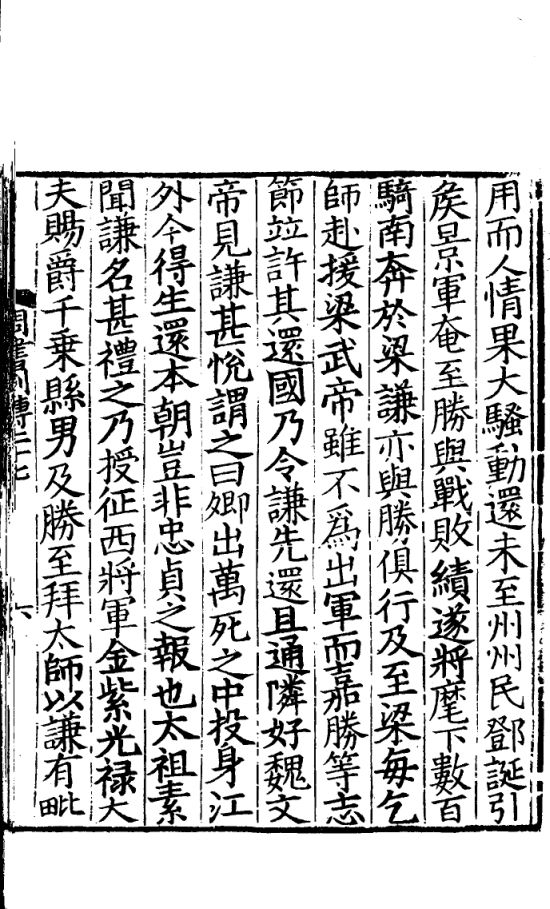 用而人情果大騷動還未至州州民鄧誕引
矦景軍奄至勝與戰敗績遂將麾下數百
騎南奔於梁謙亦與勝俱行及至梁每乞
師赴援梁武帝雖不爲出軍而嘉勝等志
節竝許其還國乃令謙先還且通隣好魏文
帝見謙甚悅謂之曰卿出萬死之中投身江
外今得生還本朝豈非忠貞之報也太祖素
聞謙名甚禮之乃授征西將軍金紫光祿大
夫賜爵千乗縣男及勝至拜太師以謙有毗
周書列傳二十七
六